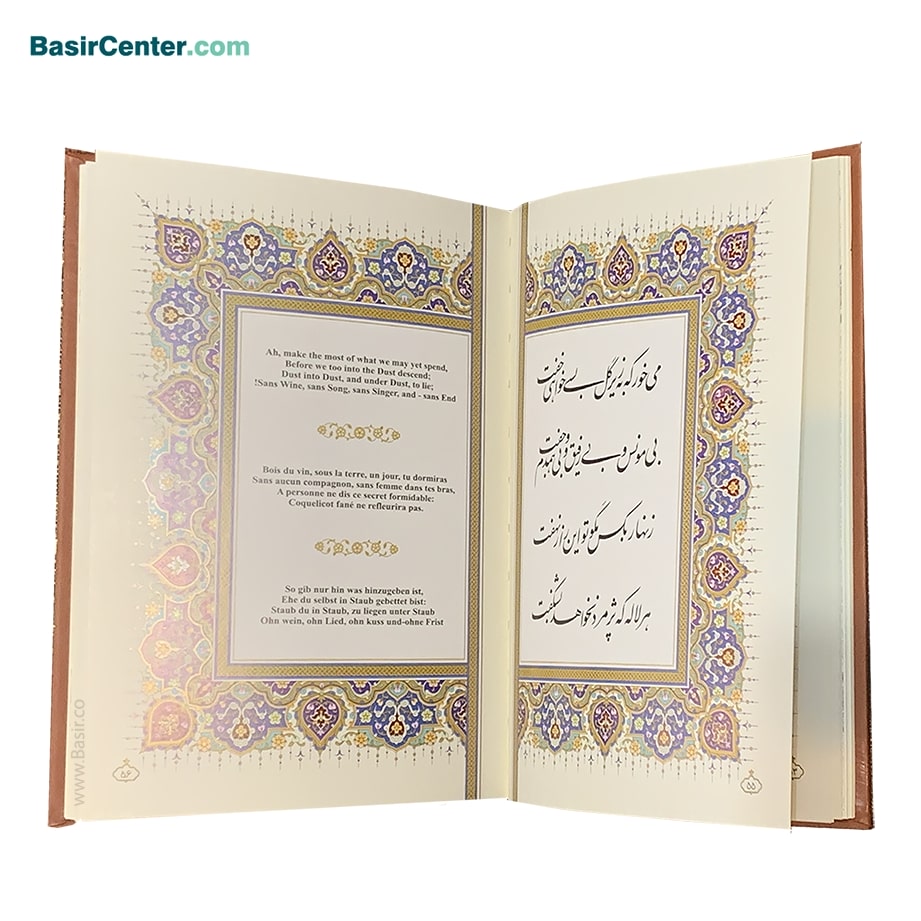 BasirCenter.com
می خور که به زیر گل بسی خواهی خفت
بی مونس و بی رفیق و بی همدم و جفت
زنهار بکس مگو تو این راز نهفت
هر لاله که پژمرد نخواهد بشکفت
۵۵
Ah, make the most of what we may yet spend,
Before we too into the Dust descend;
Dust into Dust, and under Dust, to lie;
!Sans Wine, sans Song, sans Singer, and - sans End
Bois du vin, sous la terre, un jour, tu dormiras
Sans aucun compagnon, sans femme dans tes bras,
A personne ne dis ce secret formidable:
Coquelicot fané ne refleurira pas.
So gib nur hin was hinzugeben ist,
Ehe du selbst in Staub gebettet bist:
Staub du in Staub, zu liegen unter Staub
Ohn wein, ohn Lied, ohn kuss und-ohne Frist
۵۶
www.Basir.co